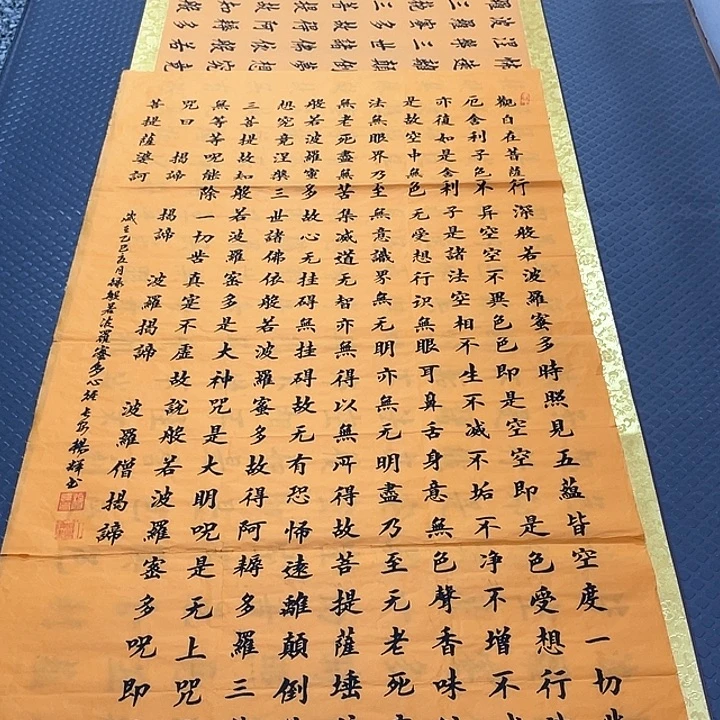 觀自在菩薩行深般若波羅蜜多時照見五蘊皆空度一切
厄舍利子色不異空空不異色色即是空空即是色受想行
亦復如是舍利子是諸法空相不生不滅不垢不净不增不
是故空中無色无受想行识無眼耳鼻舌身意無色聲香味
法無眼界乃至無意識界無无明亦無无明盡乃至无老死
無老死盡無苦集滅道无智亦無得以無所得故菩提薩埵
般若波羅蜜多故心无挂碍無挂碍故无有恐怖遠離顛倒
想究竟涅槃三世諸佛依般若波羅蜜多故得阿耨多羅三
三菩提故知般若波羅蜜多是大神咒是大明呪是无上咒
無等等呪能除一切苦真实不虚故說般若波羅蜜多呪即
咒曰 揭諦 揭諦 波羅揭諦 波羅僧揭諦
菩提薩婆訶
歲在乙巳五月錄般若波羅蜜多心經 长安楊輝書